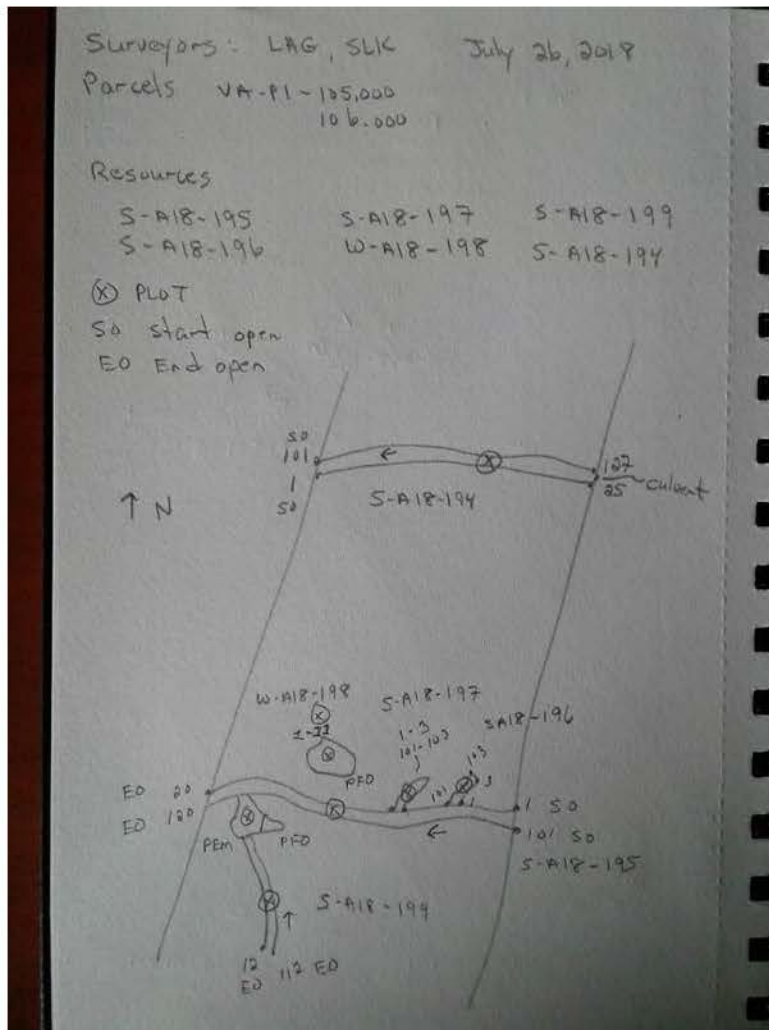 Surveyors: LAG, SLK July 26, 2018
Parcels VA-P1-105,000
106.000
Resources
S-A18-195 S-A18-197 S-A18-199
S-A18-196 W-A18-198 S-A18-194
ⓧ PLOT
SO Start open
EO End open
SO
101
1
SO
127
25
culvert
↑ N
S-A18-194
W-A18-198
S-A18-197
1-3
101-103
SA18-196
103
3
101
1
PFO
EO 20
EO 120
1 SO
101 SO
S-A18-195
PEM
PFO
12
EO
112 EO